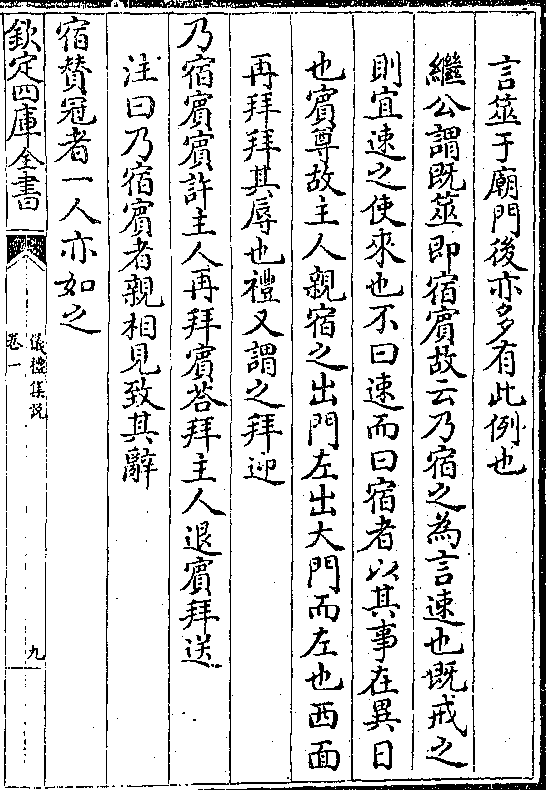 言筮于廟門後亦多有此例也
繼公謂既筮即宿賓故云乃宿之為言速也既戒之
則宜速之使來也不曰速而曰宿者以其事在異日
也賓尊故主人親宿之出門左出大門而左也西面
再拜拜其辱也禮又謂之拜迎
乃宿賓賓許主人再拜賓荅拜主人退賓拜送
注曰乃宿賓者親相見致其辭
宿賛冠者一人亦如之
欽定四庫全書
儀禮集說
卷一
九